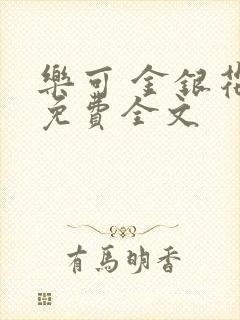 樂可 金銀花
免費全文
有馬明香